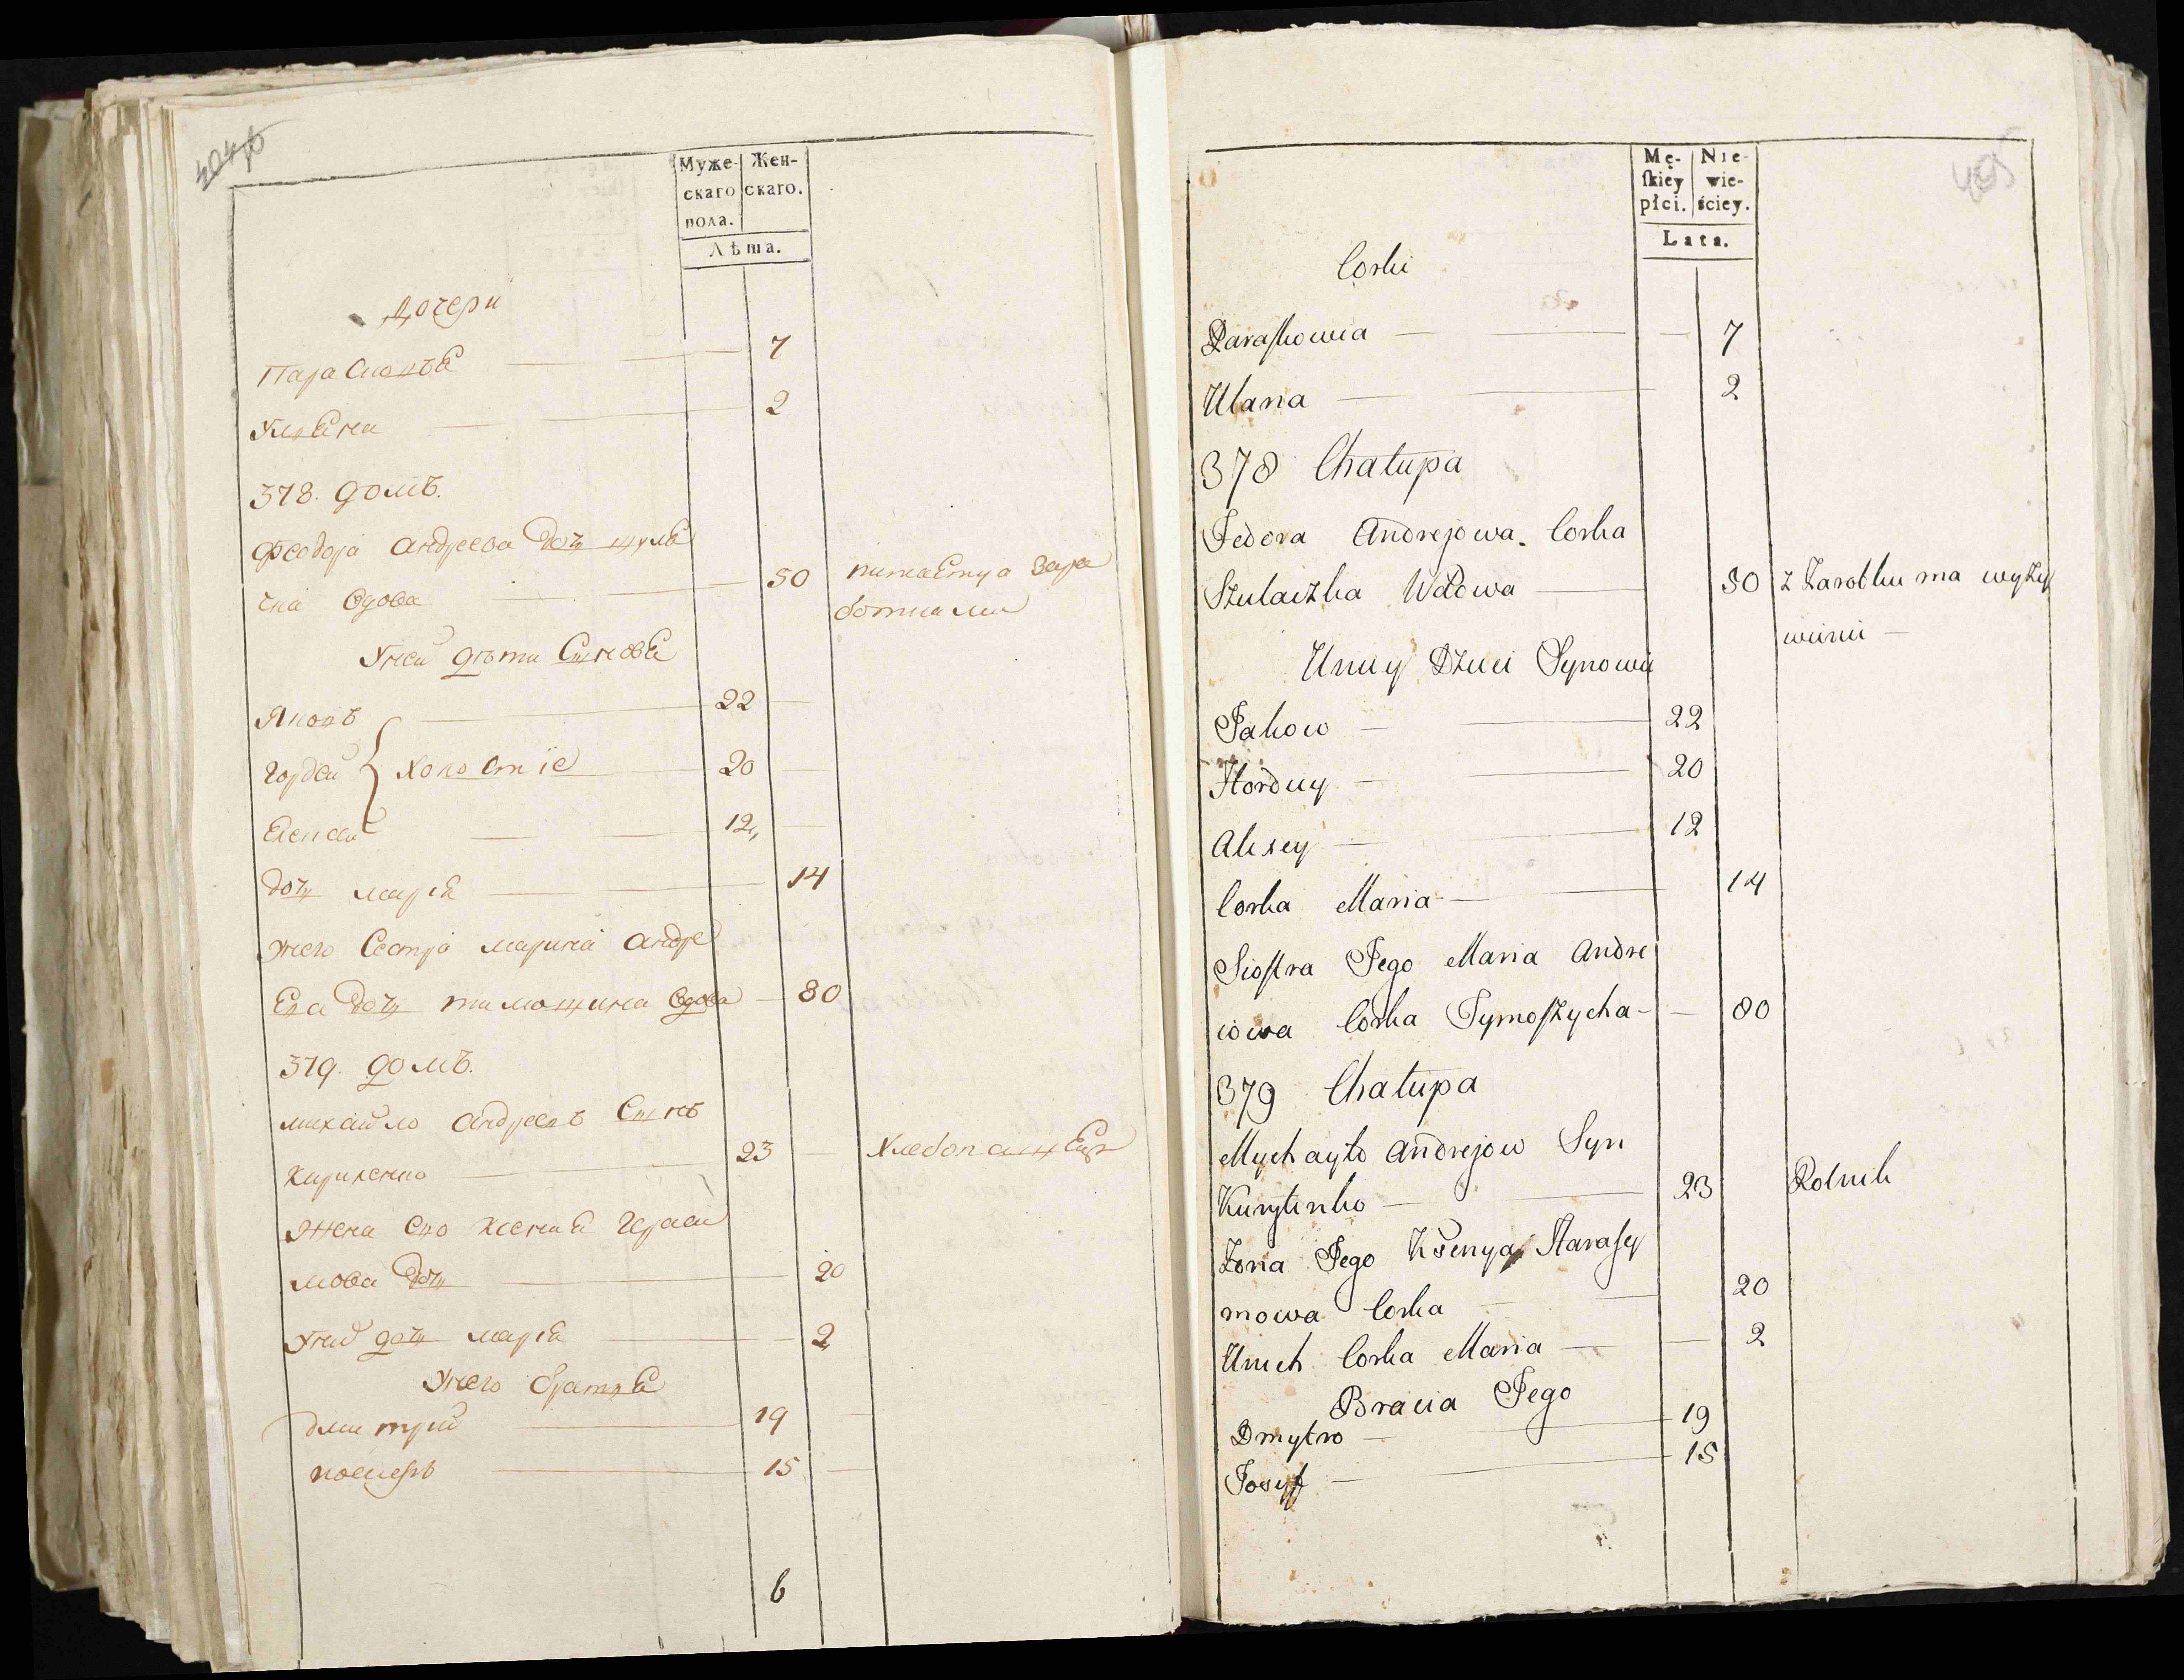 404 об
Муже-
скаго
пола.
Жен-
скаго.
Лѣта.
Дочери
Парасковья 7
Ульяна 2
378. домъ.
Феодора Андреева дочь шуля
чка вдова 50 питается зара
ботками
У ней дѣти Сыновья
Яковъ 22
Гордей холостіе 20
Елисей 12
дочь марія 14
У него Сестра марина Андре
ева дочь тимошиха вдова 80
379. домъ.
михайло Андреевъ Сынъ
Кириленко 23 Хлебопашецъ
Жена его Ксенія Гераси
мова дочь 20
У них дочь марія 2
У него братья
дмитрий 19
иосифъ 15
6
405
Mę-
ſkiey
płci.
Nie-
wie-
ściey.
Lata.
Corki
Paraſkowia 7
Ulana 2
378 Chałupa
Fedora Andrejowa Corka
Szulaczka Wdowa 50 z Zarobku ma wyży
wienie
U niey Dzieci Synowie
Jakow 22
Hordiey 20
Alexey 12
Corka Maria 14
Sioſtra Jego Maria Andre
iowa Corka Tymoſzycha 80
379 Chałupa
Mychayło Andrejow Syn
Kurylenko 23 Rolnik
Żona Jego Ksenya Harasy
mowa Corka 20
U nich Corka Maria 2
Bracia Jego
Dmytro 19
Josyf 15